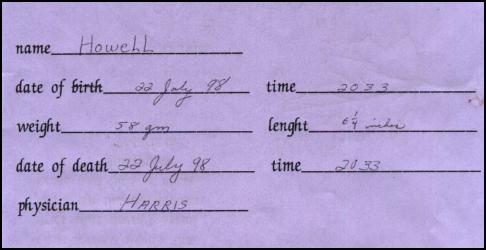 name Howell
date of birth 22 July 98 time 2033
weight 58 gm lenght 6¼ inches
date of death 22 July 98 time 2033
physician HARRIS